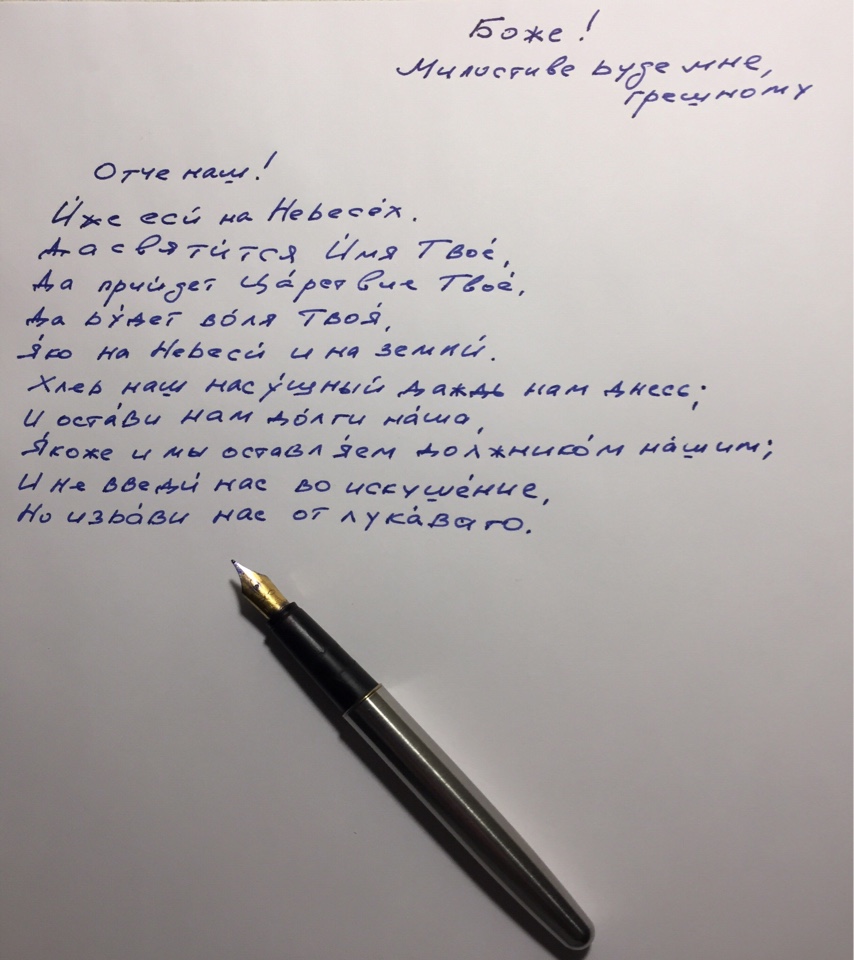 Боже!
Милостиве буде мне,
грешному
Отче наш!
И́же еси́ на Небесе́х.
Да святи́тся И́мя Твое́,
Да прии́дет Ца́рствие Твое́,
Да бу́дет во́ля Твоя́,
Я́ко на Небеси́ и на земли́.
Хлеб наш насу́щный даждь нам днесь;
И оста́ви нам до́лги на́ша,
Я́коже и мы оставля́ем должнико́м на́шим;
И не введи́ нас во искуше́ние,
Но изба́ви нас от лука́ваго.